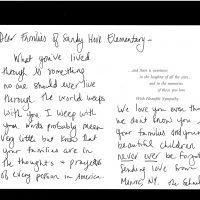 Dear Families of Sandy Hook Elementary -
What you've lived
through is something
no one should ever live
through. The world weeps
with you. I weep with
you. Words probably mean
very little but know that
your families are in
the thoughts + prayers
of every person in America.
and there is sweetness
in the laughter of all the
and in the memories
of those you love
With Heartfelt Sympathy
We love you even tho
we don't know you
Your families and your
beautiful children
never ever be forgot
Sending love from
Monroe, NY. The